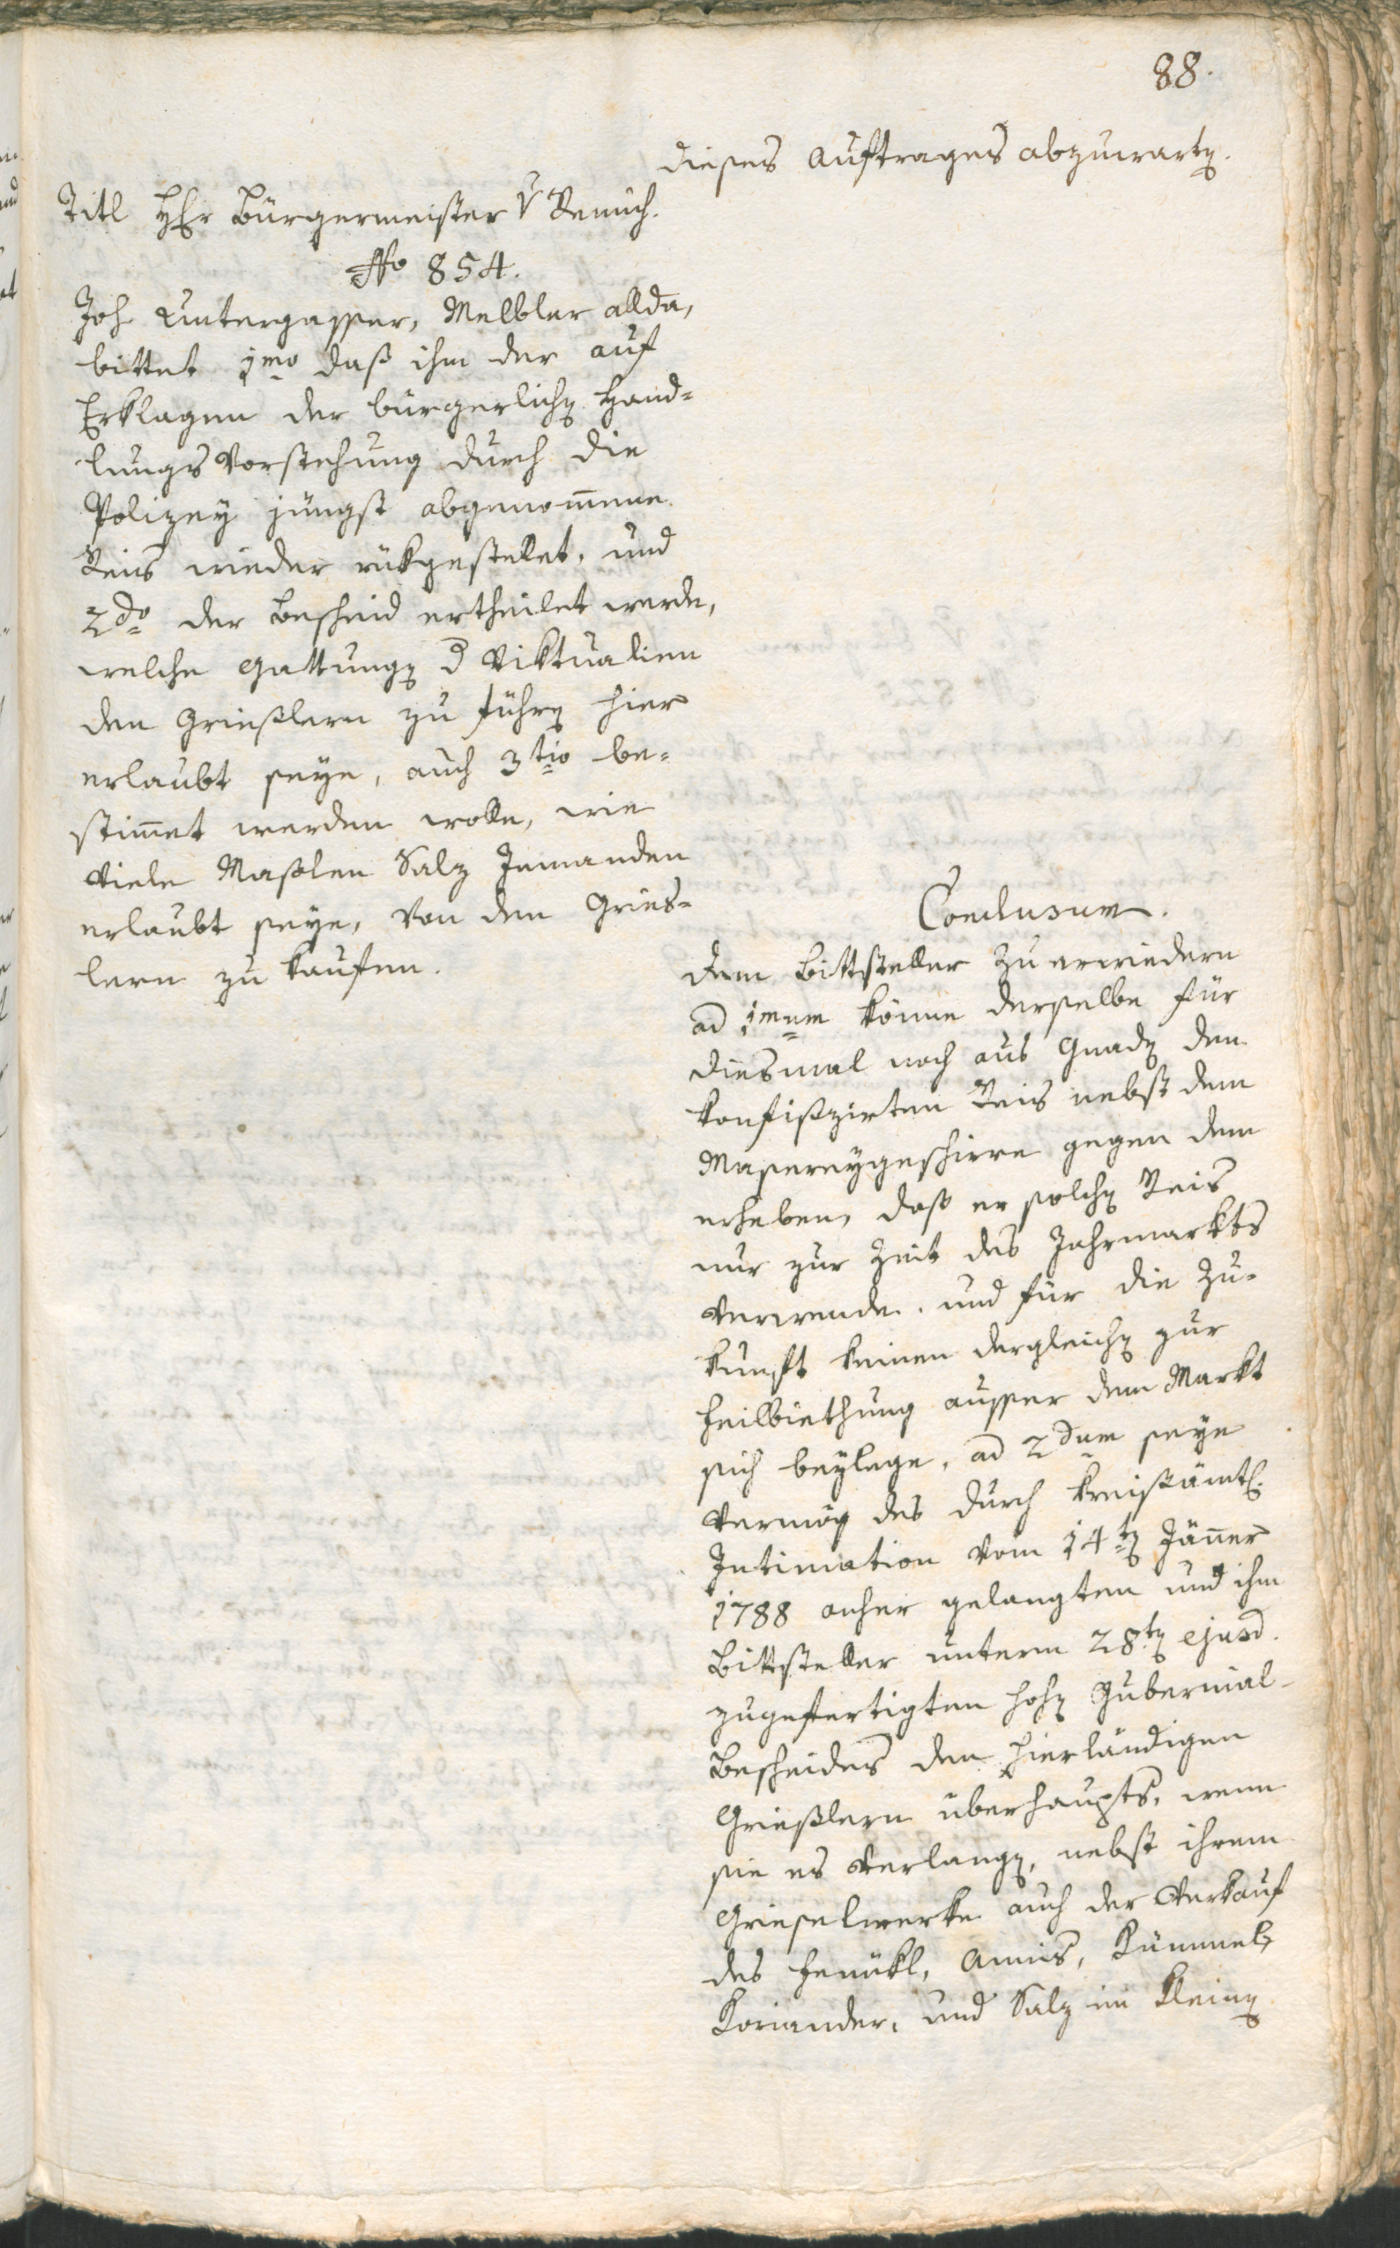 88.
dieses Auftrages abzuwarten.
Titl HEr Bürgermeister v
No 854.
Joh Untergasser, Melbler allda,
bittet 1mo daß ihm der auf
Erklagen der bürgerlichen Hand-
lungs Vorstehung durch die
Polizey jüngst abgenom̄mene
Reis wieder rükgestellet, und
2do der Bescheid ertheilet werde,
welche Gattungen der Viktualien
den Grießlern zu führen hier
erlaubt seye, auch 3tio be-
stim̄et werden wolle, wie
viele Maßlen Salz Jemanden
erlaubt seye, von den Gries-
lern zu kaufen.
Conclusum.
dem Bittsteller zu erwiedern
ad 1mum könne derselbe für
diesmal noch aus Gnaden den
konfiszirten Reis nebst dem
Masereygeschirre gegen dem
erheben, daß er solchen Reis
nur zur Zeit des Jahrmarkts
verwende, und für die Zu-
kunft keinen dergleichen zur
Feilbiethung ausser dem Markt
sich beylege, ad 2dum seye
vermög des durch kreisämtl.
Intimation vom 14ten Jän̄er
1788 anher gelangten und ihm
Bittsteller unterm 28ten ejusd.
zugefertigten hohen Gubernial-
Bescheides den hierländigen
Grießlern überhaupts, wenn
sie es verlangen, nebst ihrem
Grieselwerke auch der Verkauf
des Fenükl, Annis, Kümmel,
Koriander, und Salz im Kleinen